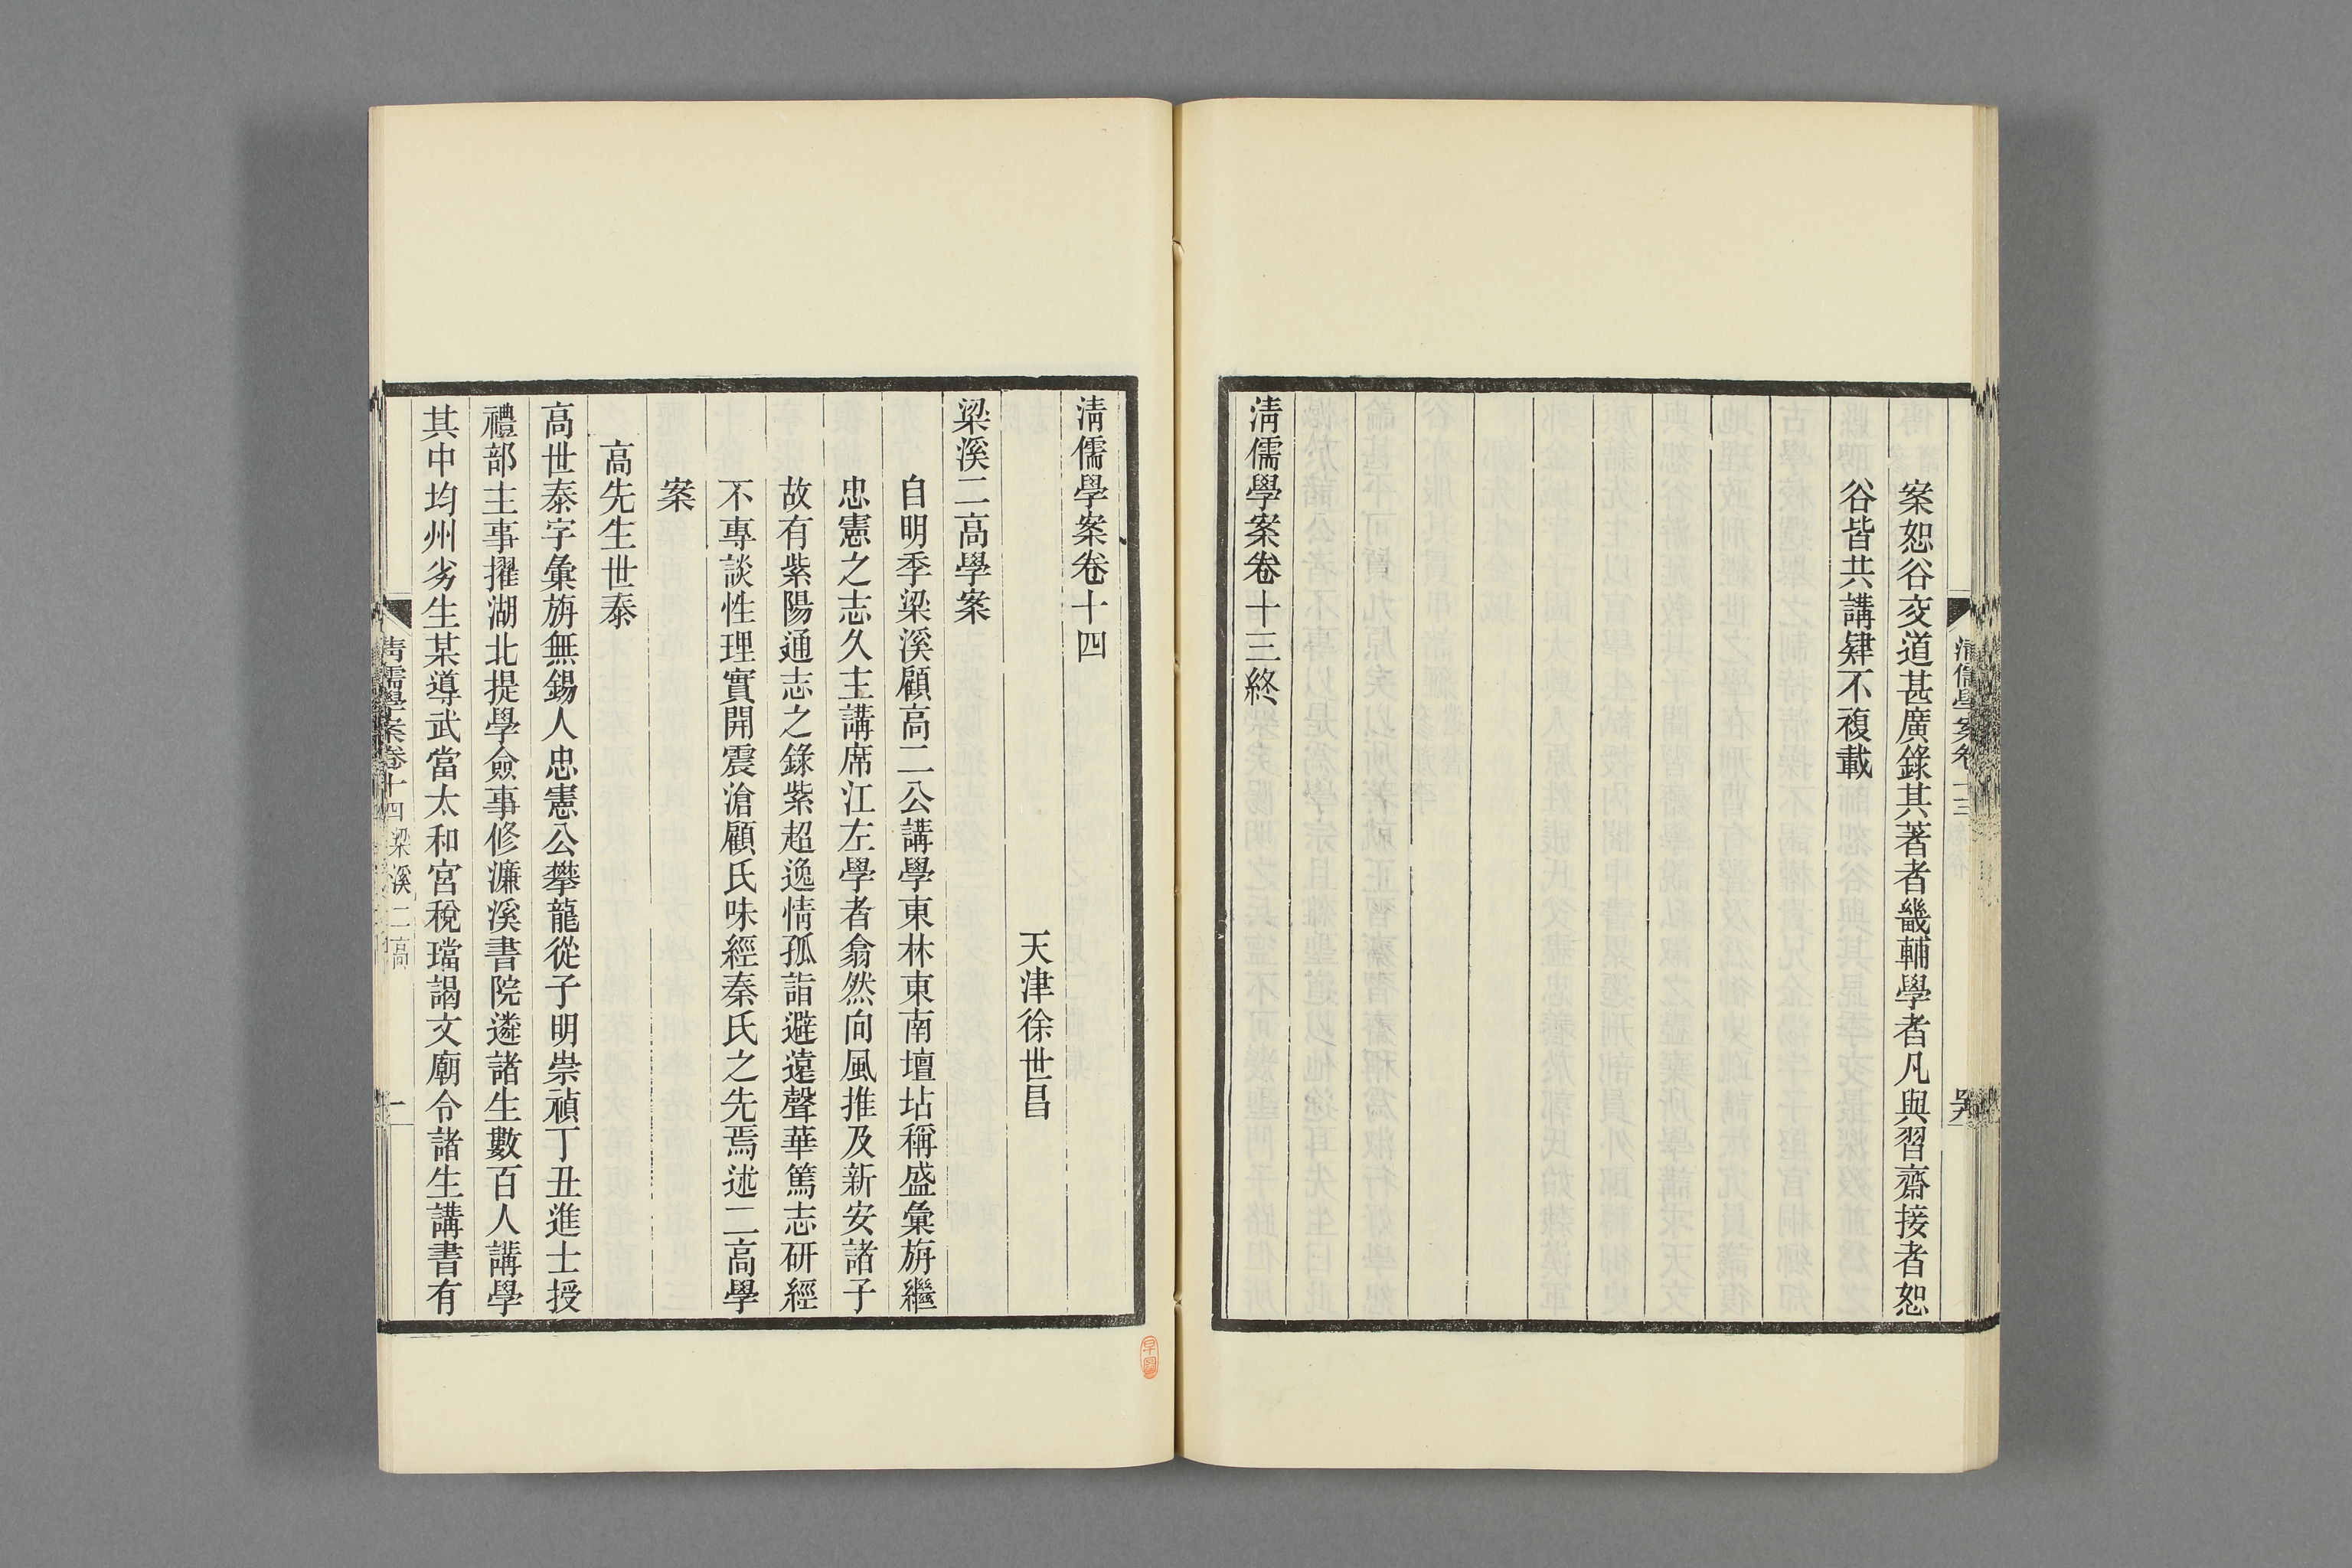 案恕谷交道甚廣錄其著者畿輔學者凡與習齋接者恕
谷皆共講肄不複載
清儒學案卷十三終
清儒學案卷十三
清儒學案卷十四
天津徐世昌
梁溪二高學案
自明季梁溪顧高二公講學東林東南壇坫稱盛彙旃繼
忠憲之志久主講席江左學者翕然向風推及新安諸子
故有紫陽通志之錄紫超逸情孤詣避遠聲華篤志研經
不專談性理實開震滄顧氏味經秦氏之先焉述二高學
案
高先生世泰
高世泰字彙旃無錫人忠憲公攀龍從子明崇禎丁丑進士授
禮部主事擢湖北提學僉事修濂溪書院遴諸生數百人講學
其中均州劣生某導武當太和宮稅璫謁文廟令諸生講書有
清儒學案卷十四 梁溪二高
一